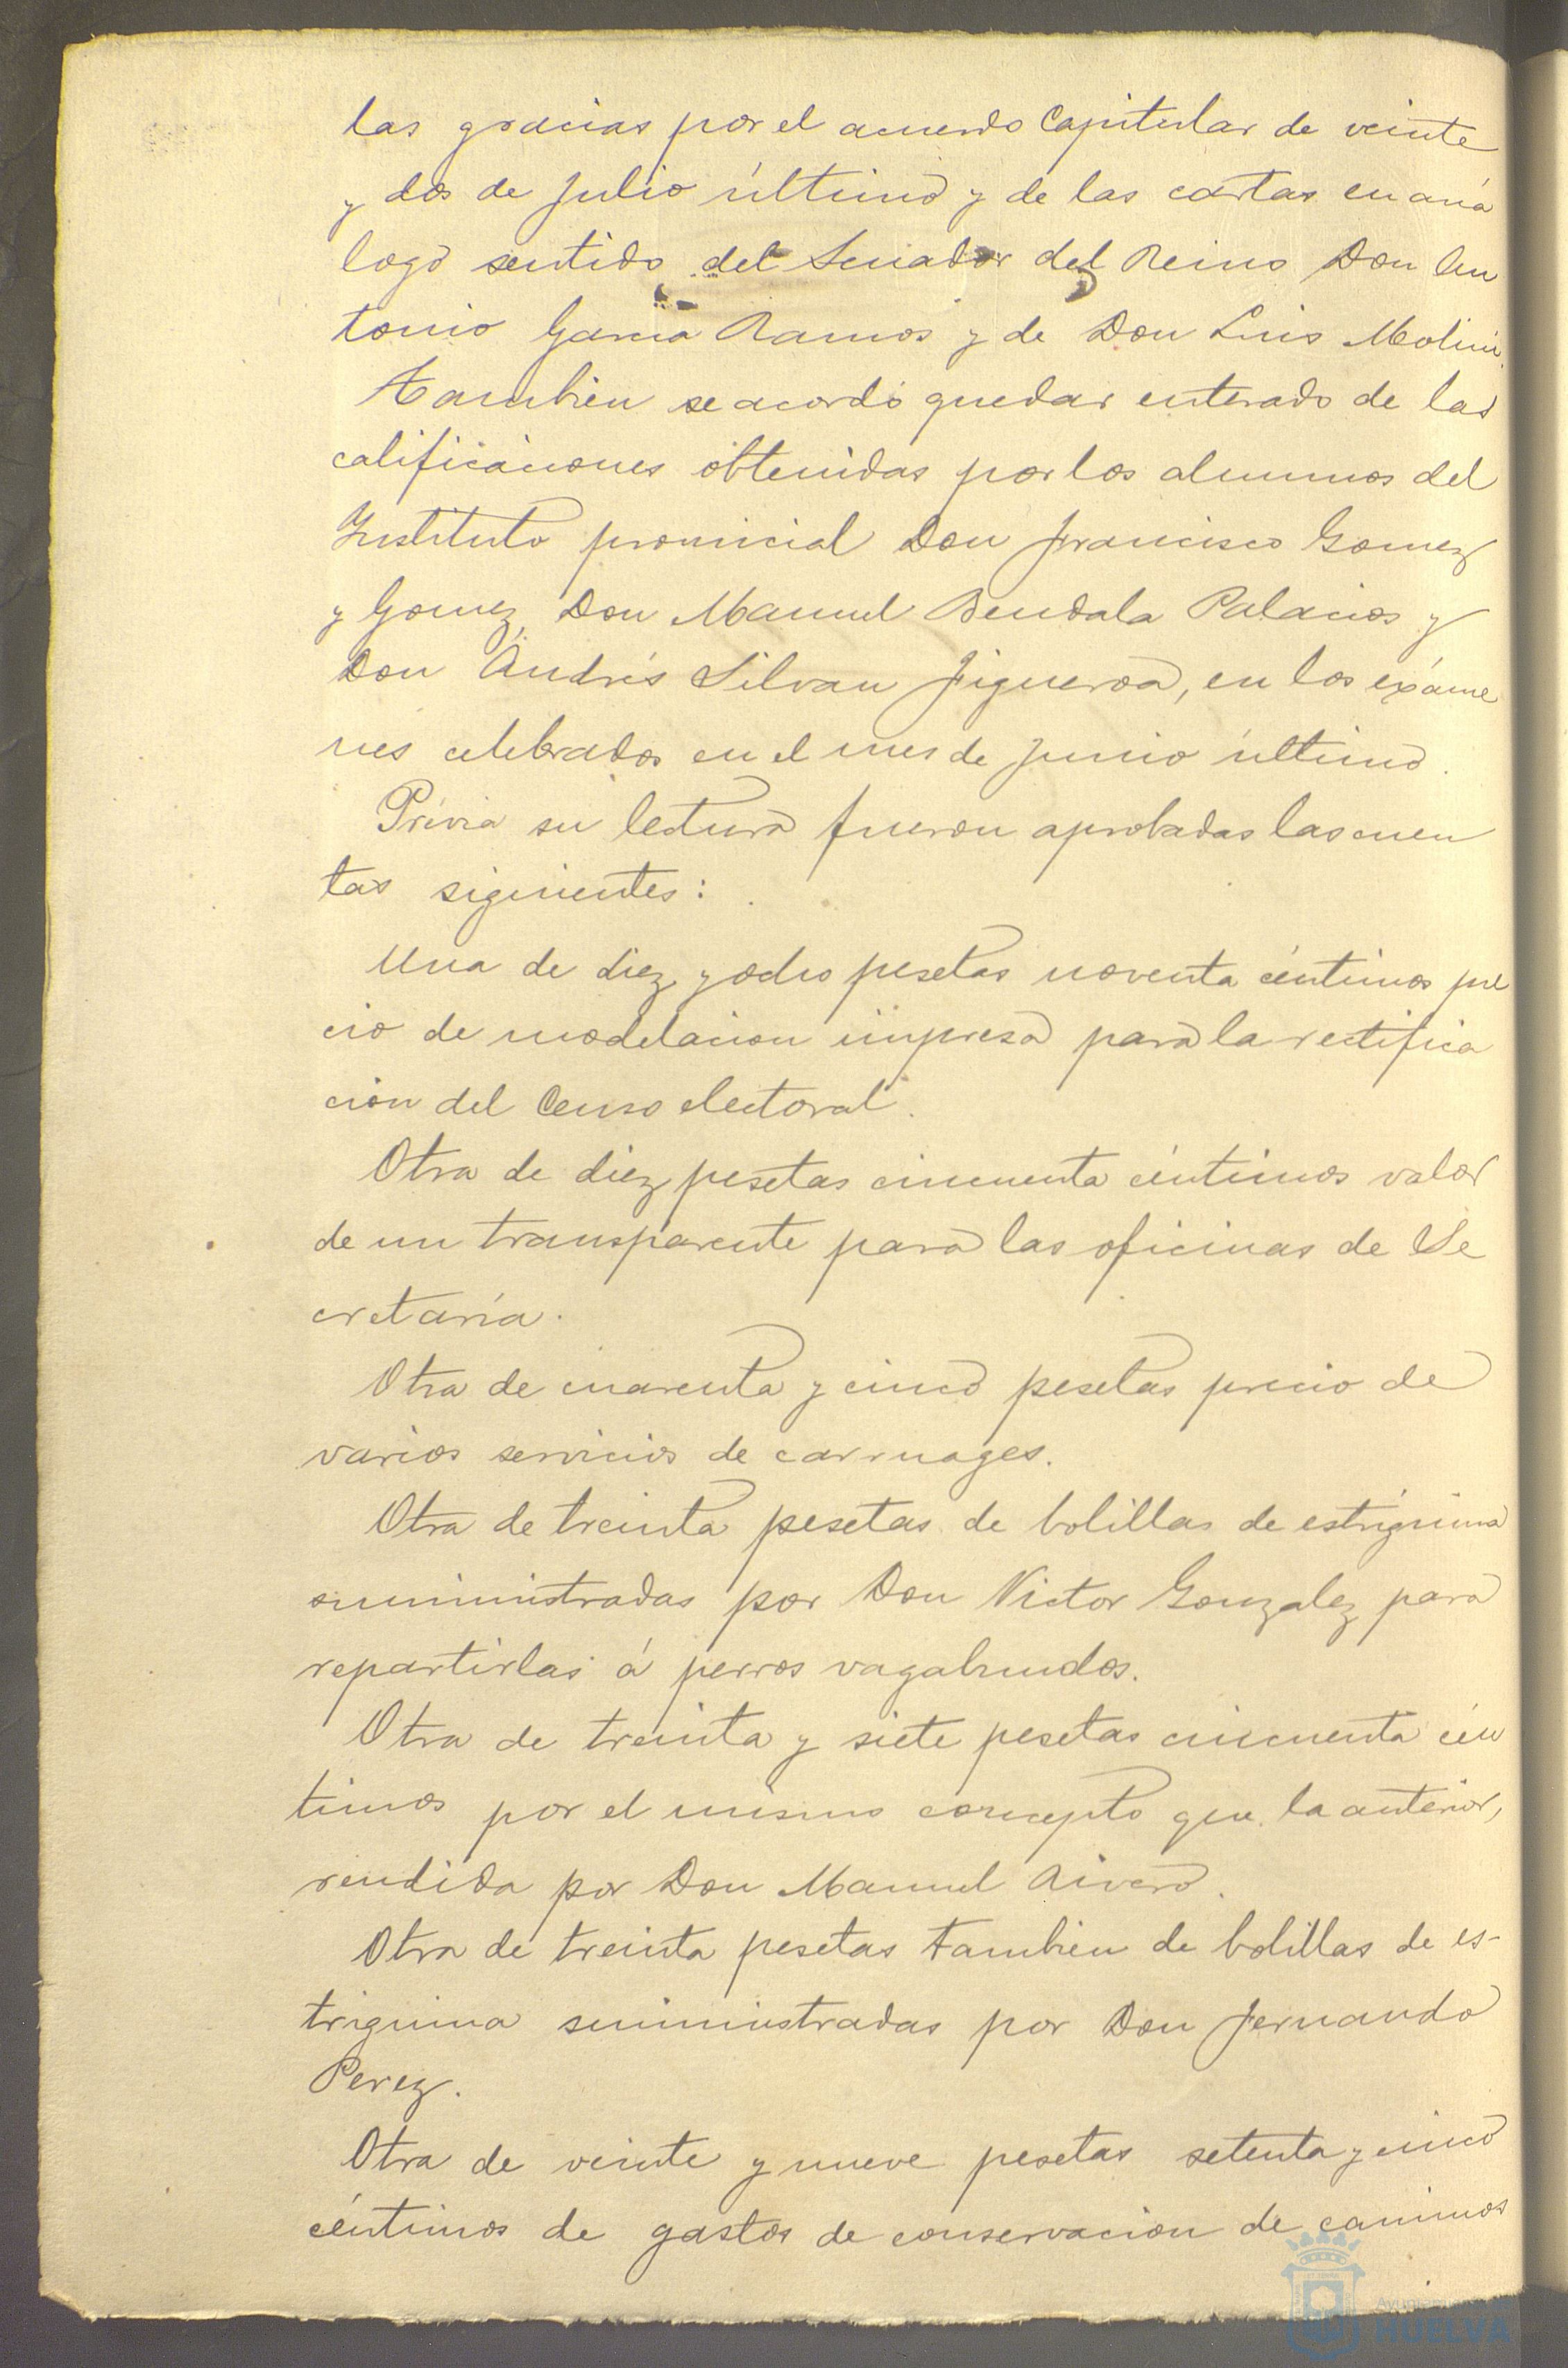 las gracias por el acuerdo Capitular de veinte
y dos de Julio último y de las cartas en aná
logo sentido del Senador del Reino Don An
tonio Garcia Ramos y de Don Luis Molini.
Tambien se acordó quedar enterado de las
calificaciones obtenidas por los alumnos del
Instituto provincial Don Francisco Gomez
y Gomez, Don Manuel Bendala Palacios y
Don Andrés Silvan Figueroa, en los exáme
nes celebrados en el mes de Junio último.
Prévia su lectura fueron aprobadas las cuen
tas siguientes:
Una de diez y ocho pesetas noventa céntimos pre
cio de modelacion impresa para la rectifica
ción del Censo electoral.
Otra de diez pesetas cincuenta céntimos valor
de un transparente para las oficinas de Se
cretaría.
Otra de cuarenta y cinco pesetas precio de
varios servicios de carruages.
Otra de treinta pesetas de bolillas de estriguina
suministradas por Don Victor Gonzalez para
repartirlas á perros vagabundos.
Otra de treinta y siete pesetas cincuenta cén
timos por el mismo concepto que la anterior,
rendida por Don Manuel Rivero.
Otra de treinta pesetas tambien de bolillas de es-
triguina suministradas por Don Fernando
Perez.
Otra de veinte y nueve pesetas setenta y cinco
céntimos de gastos de conservacion de caminos
Ayuntamiento de
HUELVA